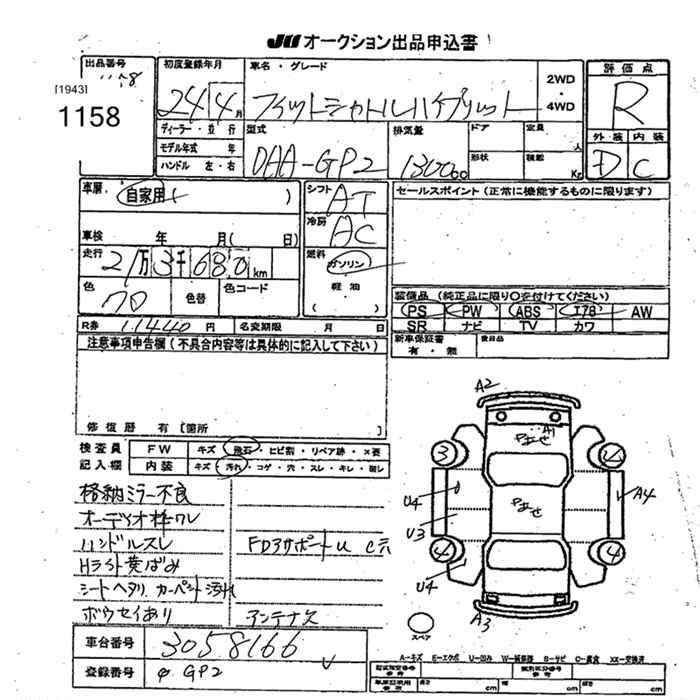 JU オークション出品申込書
出品番号
[1943]
1158
初度登録年月
24年 4月
車名・グレード
フィットシャトルハイブリット
2WD
・
4WD
評価点
R
ディーラー・並行
モデル年式 年
ハンドル 左・右
型式
DAA-GP2
排気量
1300cc
ドア
定員 人
形状
積載 Kg
外装 内装
D C
車歴 自家用 ( )
シフト
AT
冷房
AC
セールスポイント (正常に機能するものに限ります)
車検 年 月( 日)
走行
21万3千680km
燃料
ガソリン
軽油
色
70
色替
色コード
装備品 (純正品に限り○を付けてください)
PS PW ABS エアB AW
SR ナビ TV カワ
R券 11440円
名変期限 月 日
新車保証書
有・無
注意事項申告欄 (不具合内容等は具体的に記入して下さい)
修復歴 有 [箇所
検査員
記入欄
FW キズ・飛石・ヒビ割・リペア跡・X要
内装 キズ・汚れ・コゲ・穴・スレ・キレ・割レ
格納ミラー不良
オーディオ枠ワレ
ハンドルスレ
FDアサポートU
Hライト黄ばみ
シートヘタリ カーペット汚れ
ボウセイあり
アンテナス
A2
A1
Pあせ
3
U4
A4
Pあせ
U3
4
4
U4
A3
スペア
車台番号 3058166
登録番号 GP2
A-キズ E-エクボ U-凹み W-補修跡 S-サビ C-腐食 XX-交換済
長さ cm
幅 cm
高さ cm